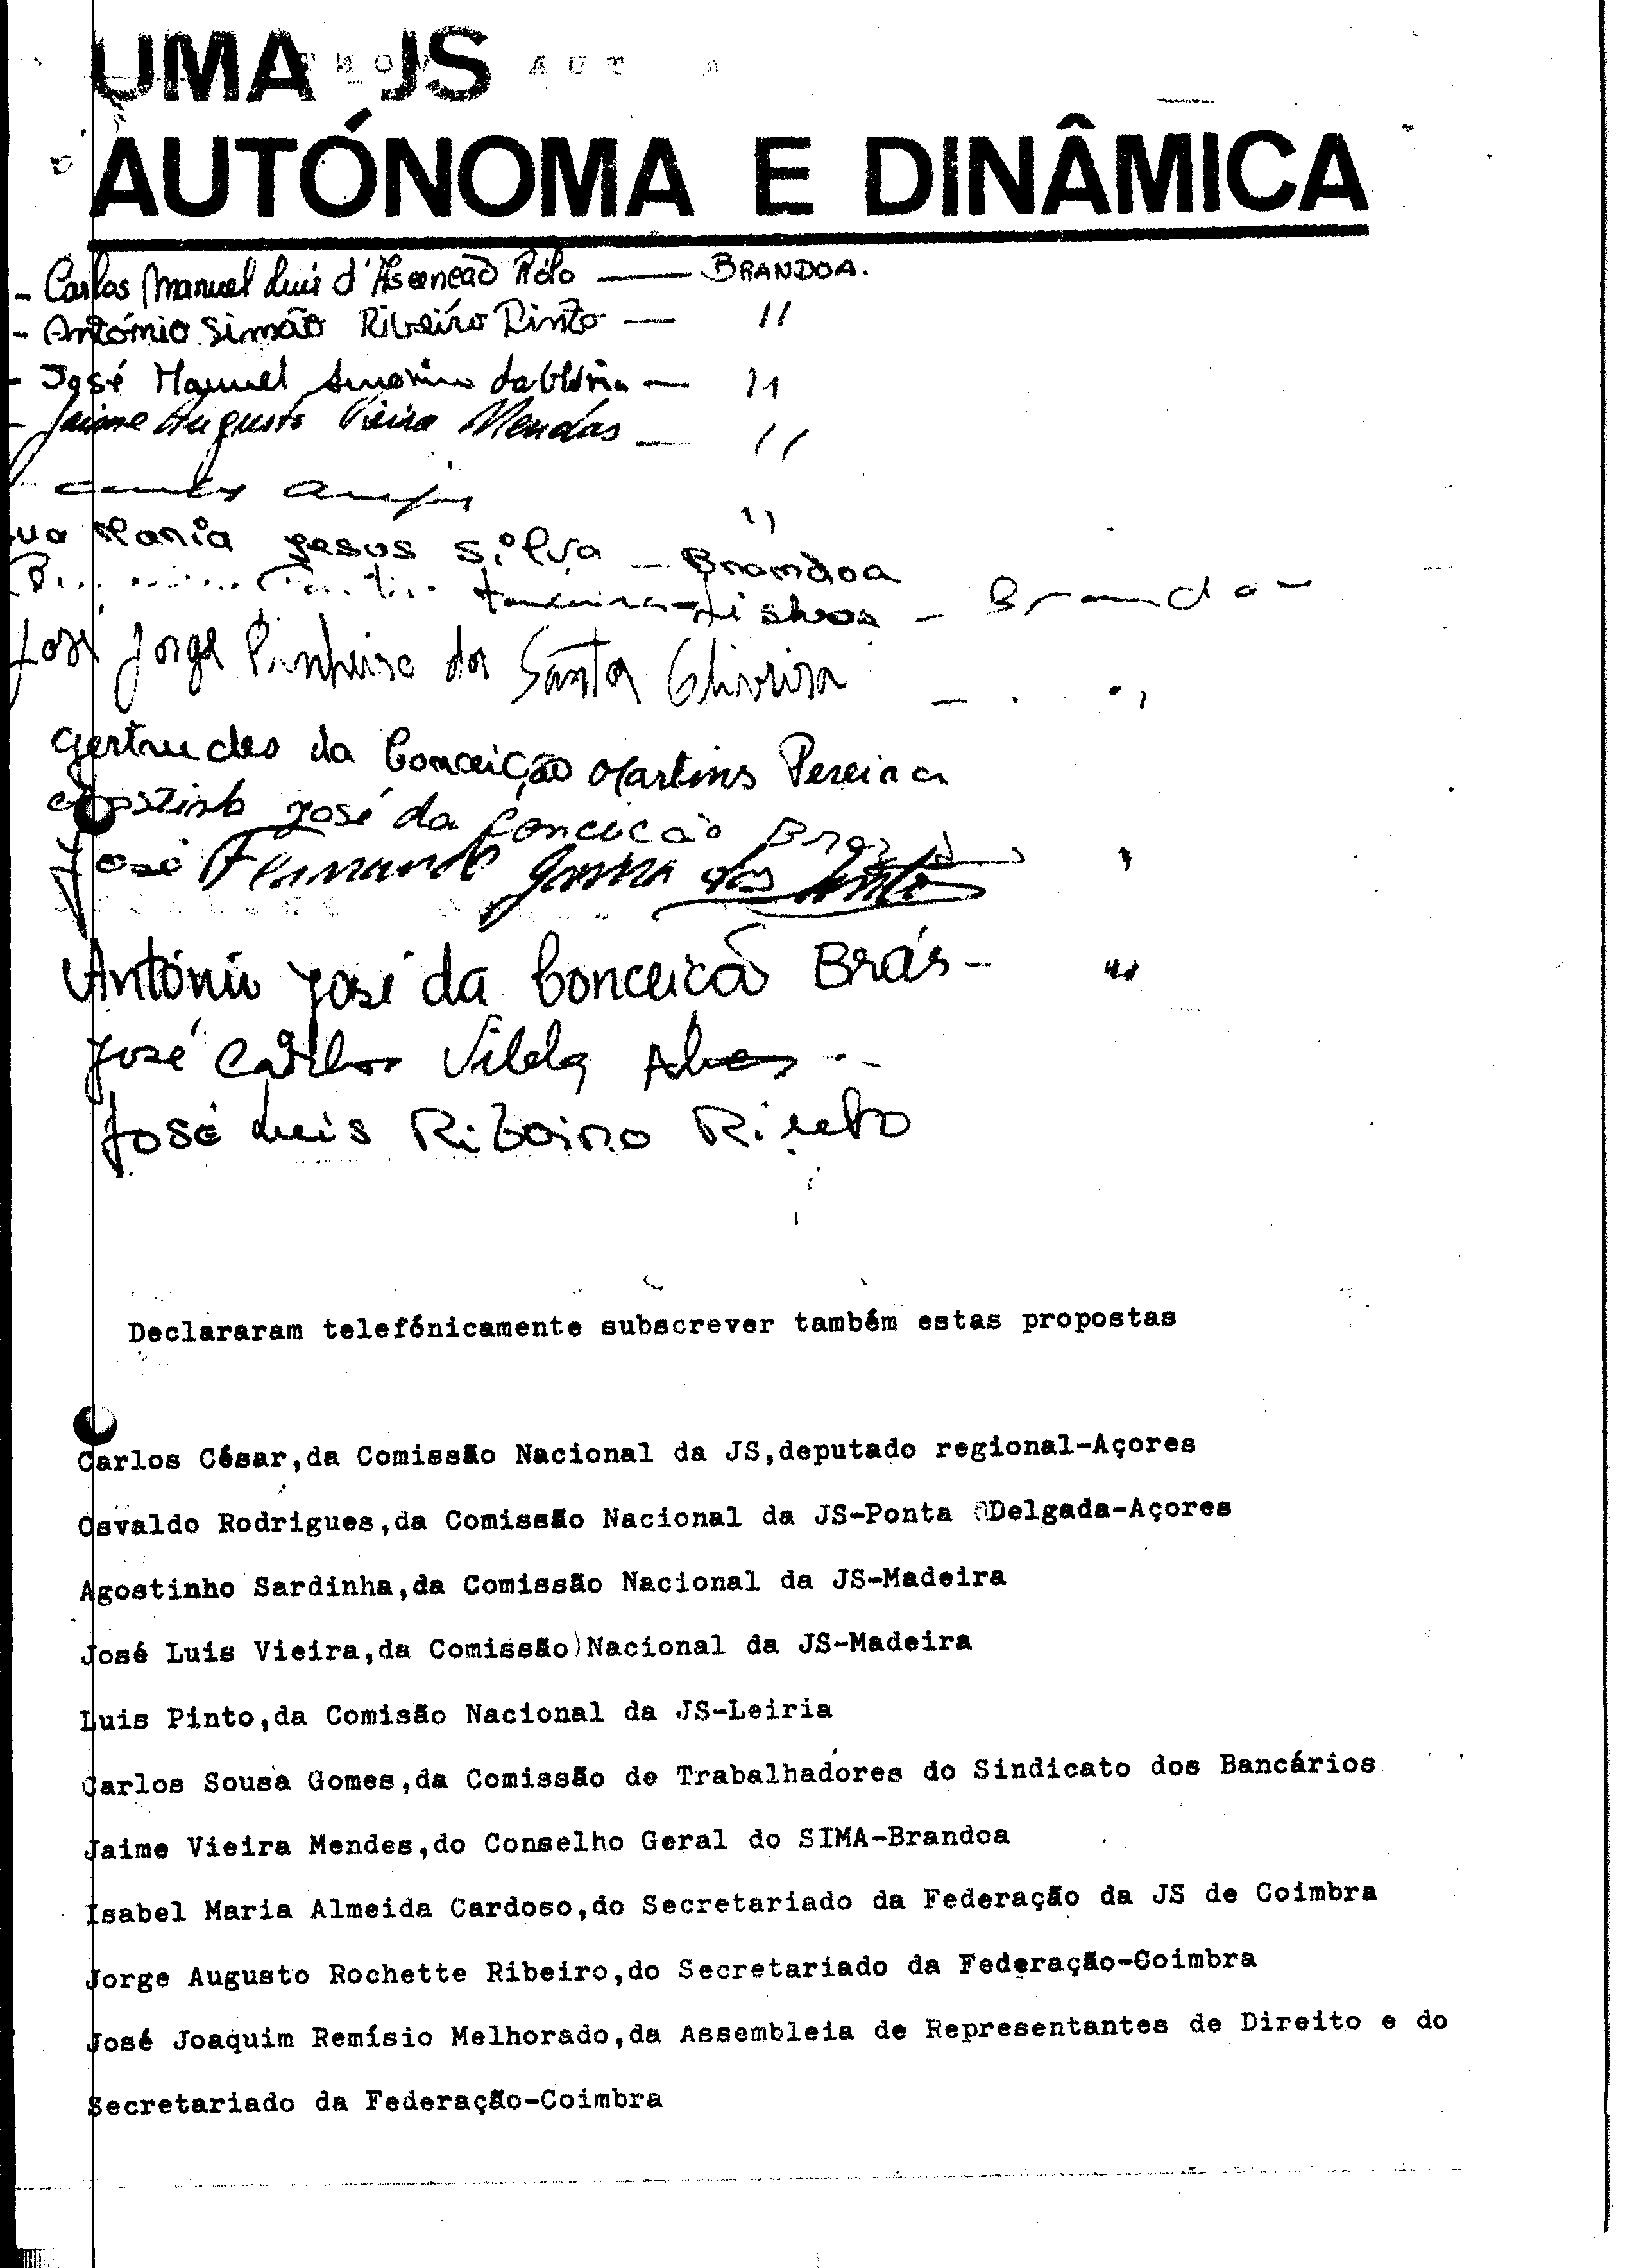 UMA JS
AUTÓNOMA E DINÂMICA
- Carlos Manuel Luis d'Asceneão Pólo — BRANDOA.
- António Simão Ribeiro Pinto — "
- José Manuel da Glória — "
- Jaime Augusto Vieira Mendes — "
"
Maria Jesus Silva - Brandoa
Lisboa - Brandoa
José Jorge Pinheiro dos Santos Oliveira -
Gertrudes da Conceição Martins Pereira
José da Conceicão
José Fernando dos
António José da Conceicão Brás - "
José Carlos Vilela Alves
José Luis Ribeiro Pinto
Declararam telefónicamente subscrever também estas propostas
Carlos César,da Comissão Nacional da JS,deputado regional-Açores
Osvaldo Rodrigues,da Comissão Nacional da JS-Ponta Delgada-Açores
Agostinho Sardinha,da Comissão Nacional da JS-Madeira
José Luis Vieira,da Comissão)Nacional da JS-Madeira
Luis Pinto,da Comisão Nacional da JS-Leiria
Carlos Sousa Gomes,da Comissão de Trabalhadores do Sindicato dos Bancários
Jaime Vieira Mendes,do Conselho Geral do SIMA-Brandoa
Isabel Maria Almeida Cardoso,do Secretariado da Federação da JS de Coimbra
Jorge Augusto Rochette Ribeiro,do Secretariado da Federação-Coimbra
José Joaquim Remísio Melhorado,da Assembleia de Representantes de Direito e do
Secretariado da Federação-Coimbra